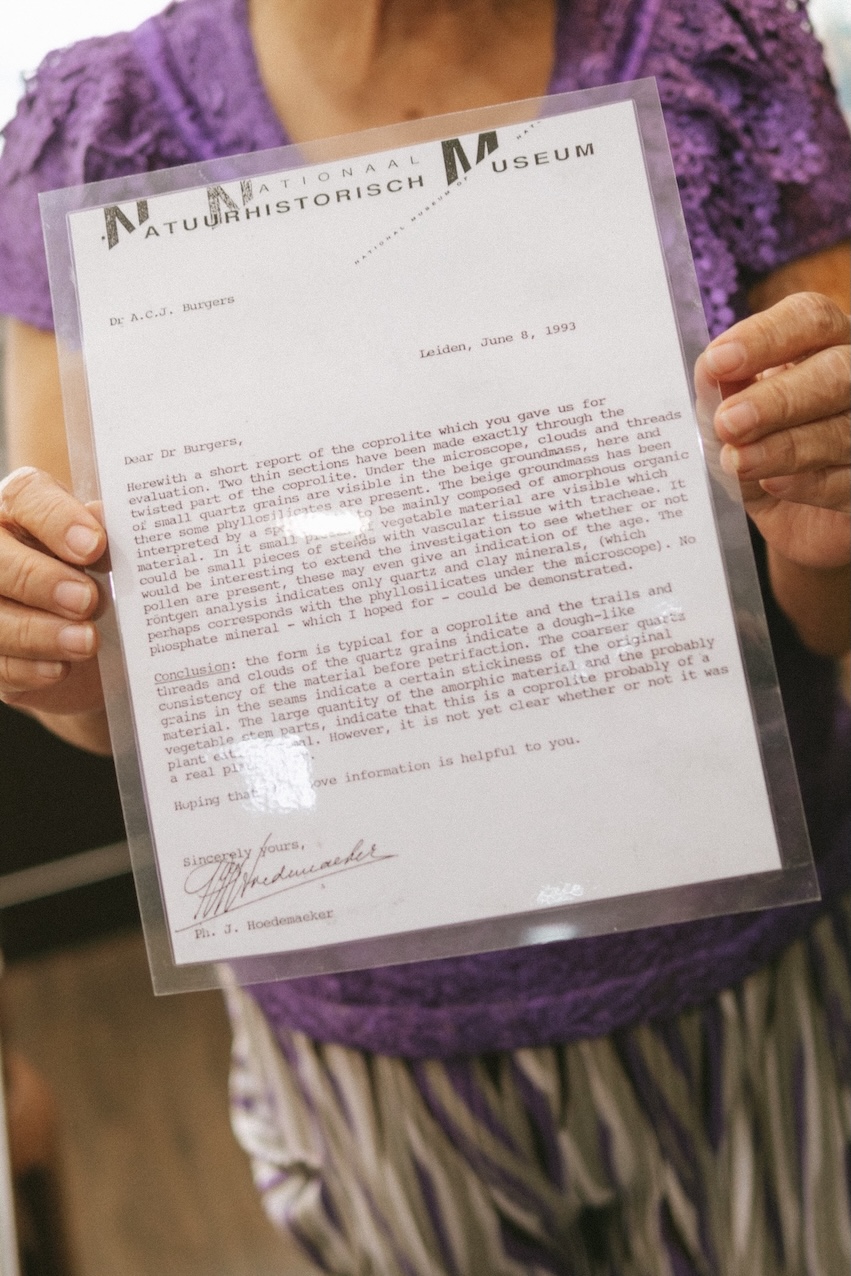 NATIONAAL
NATUURHISTORISCH MUSEUM
NATIONAL MUSEUM OF
Dr A.C.J. Burgers
Leiden, June 8, 1993
Dear Dr Burgers,
Herewith a short report of the coprolite which you gave us for
evaluation. Two thin sections have been made exactly through the
twisted part of the coprolite. Under the microscope, clouds and threads
of small quartz grains are visible in the beige groundmass, here and
there some phyllosilicates are present. The beige groundmass has been
interpreted by a to be mainly composed of amorphous organic
material. In it small vegetable material are visible which
could be small pieces of stends with vascular tissue with tracheae. It
would be interesting to extend the investigation to see whether or not
pollen are present, these may even give an indication of the age. The
röntgen analysis indicates only quartz and clay minerals, (which
perhaps corresponds with the phyllosilicates under the microscope). No
phosphate mineral - which I hoped for - could be demonstrated.
Conclusion: the form is typical for a coprolite and the trails and
threads and clouds of the quartz grains indicate a dough-like
consistency of the material before petrifaction. The coarser quartz
grains in the seams indicate a certain stickiness of the original
material. The large quantity of the amorphic material and the probably
vegetable stem parts, indicate that this is a coprolite probably of a
plant However, it is not yet clear whether or not it was
a real
Hoping that information is helpful to you.
Sincerely yours,
Ph. J. Hoedemaeker